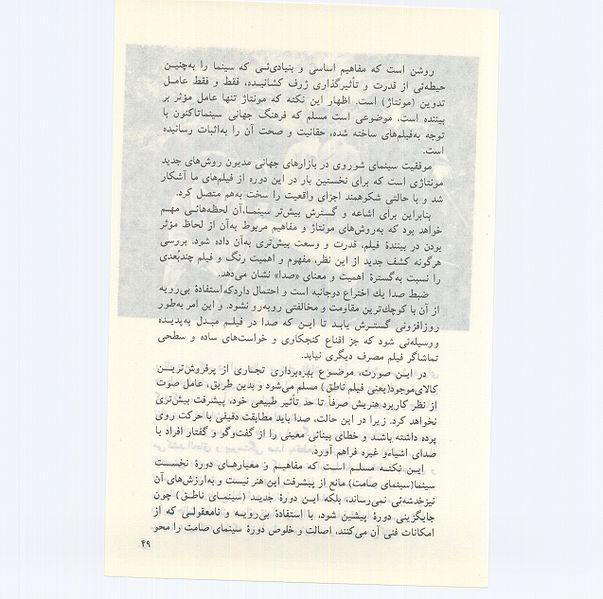 روشن است که مفاهیم اساسی و بنیادی‌ئی که سینما را به‌چنین
حیطه‌ئی از قدرت و تأثیرگذاری ژرف کشانیده، فقط و فقط عامل
تدوین (مونتاژ) است. اظهار این نکته که مونتاژ تنها عامل مؤثر بر
بیننده است، موضوعی است مسلم که فرهنگ جهانی سینماتاکنون با
توجه به‌فیلم‌های ساخته شده، حقانیت و صحت آن را به‌اثبات رسانیده
است.
موفقیت سینمای شوروی در بازارهای جهانی مدیون روش‌های جدید
مونتاژی است که برای نخستین بار در این دوره از فیلم‌های ما آشکار
شد و با حالتی شکوهمند اجزای واقعیت را سخت به‌هم متصل کرد.
بنابراین برای اشاعه و گسترش بیش‌تر سینما،آن لحظه‌هائی مهم
خواهد بود که به‌روش‌های مونتاژ و مفاهیم مربوط به‌آن از لحاظ مؤثر
بودن در بینندهٔ فیلم، قدرت و وسعت بیش‌تری به‌آن داده شود. بررسی
هرگونه کشف جدید از این نظر، مفهوم و اهمیت رنگ و فیلم چندبُعدی
را نسبت به‌گسترهٔ اهمیت و معنای «صدا» نشان می‌دهد.
ضبط صدا یك اختراع دوجانبه است و احتمال داردکه‌استفادهٔ بی‌رویه
از آن با کوچك‌ترین مقاومت و مخالفتی روبه‌رو نشود. و این امر به‌طور
روزافزونی گسترش یابد تا این که صدا در فیلم مبدل به‌پدیده
ووسیله‌ئی شود که جز اقناع کنجکاوی و خواست‌های ساده و سطحی
تماشاگر فیلم مصرف دیگری نیابد.
در این صورت، موضوع بهره‌برداری تجاری از پرفروش‌ترین
کالای‌موجود(یعنی فیلم ناطق) مسلم می‌شود و بدین طریق، عامل صوت
از نظر کاربرد هنریش صرفاً تا حد تأثیر طبیعی خود، پیشرفت بیش‌تری
نخواهد کرد. زیرا در این حالت، صدا باید مطابقت دقیقی با حرکت روی
پرده داشته باشد و خطای بینائی معینی را از گفت‌وگو و گفتار افراد یا
صدای اشیاءو غیره فراهم آورد.
این نکته مسلم است که مفاهیم و معیارهای دورهٔ نخست
سینما(سینمای صامت) مانع از پیشرفت این هنر نیست و به‌ارزش‌های آن
نیزخدشه‌ئی نمی‌رساند، بلکه این دورهٔ جدید (سینمای ناطق) چون
جایگزینی دورهٔ پیشین شود، با استفادهٔ بی‌رویه و نامعقولی که از
امکانات فنی آن می‌کنند، اصالت و خلوص دورهٔ سینمای صامت را محو
۴۹